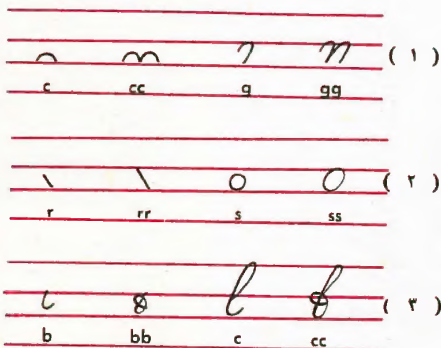 c cc g gg ( ١ )
r rr s ss ( ٢ )
b bb c cc ( ٣ )